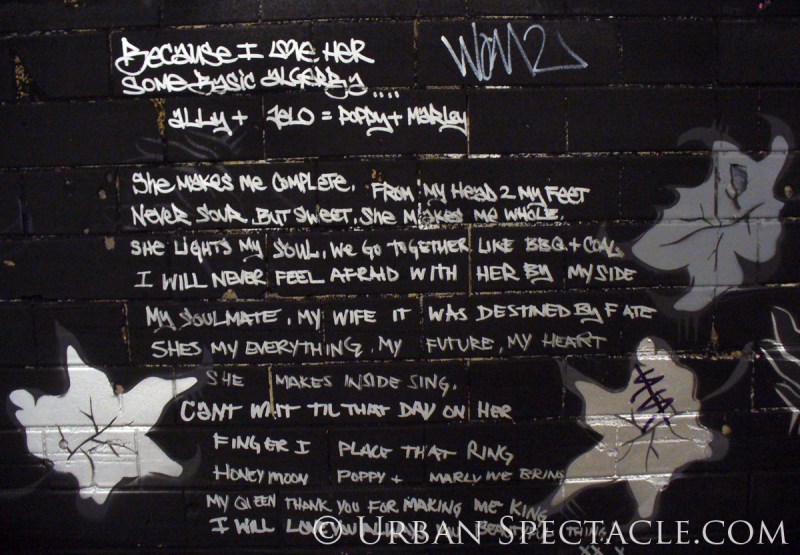 BECAUSE I LOVE HER
SOME BASIC ALGERBY....
ALLY + JELO = POPPY + MARLEY
SHE MAKES ME COMPLETE. FROM MY HEAD 2 MY FEET
NEVER SOUR. BUT SWEET. SHE MAKES ME WHOLE.
SHE LIGHTS MY SOUL, WE GO TOGETHER LIKE BBQ + COAL
I WILL NEVER FEEL AFRAID WITH HER BY MY SIDE
MY SOULMATE, MY WIFE IT WAS DESTINED BY FATE
SHES MY EVERYTHING, MY FUTURE, MY HEART
SHE MAKES INSIDE SING.
CANT WAIT TIL THAT DAY ON HER
FINGER I PLACE THAT RING
HONEYMOON POPPY + MARLY WE BRING
MY QUEEN THANK YOU FOR MAKING ME KING
I WILL LOVE
© URBAN SPECTACLE.COM